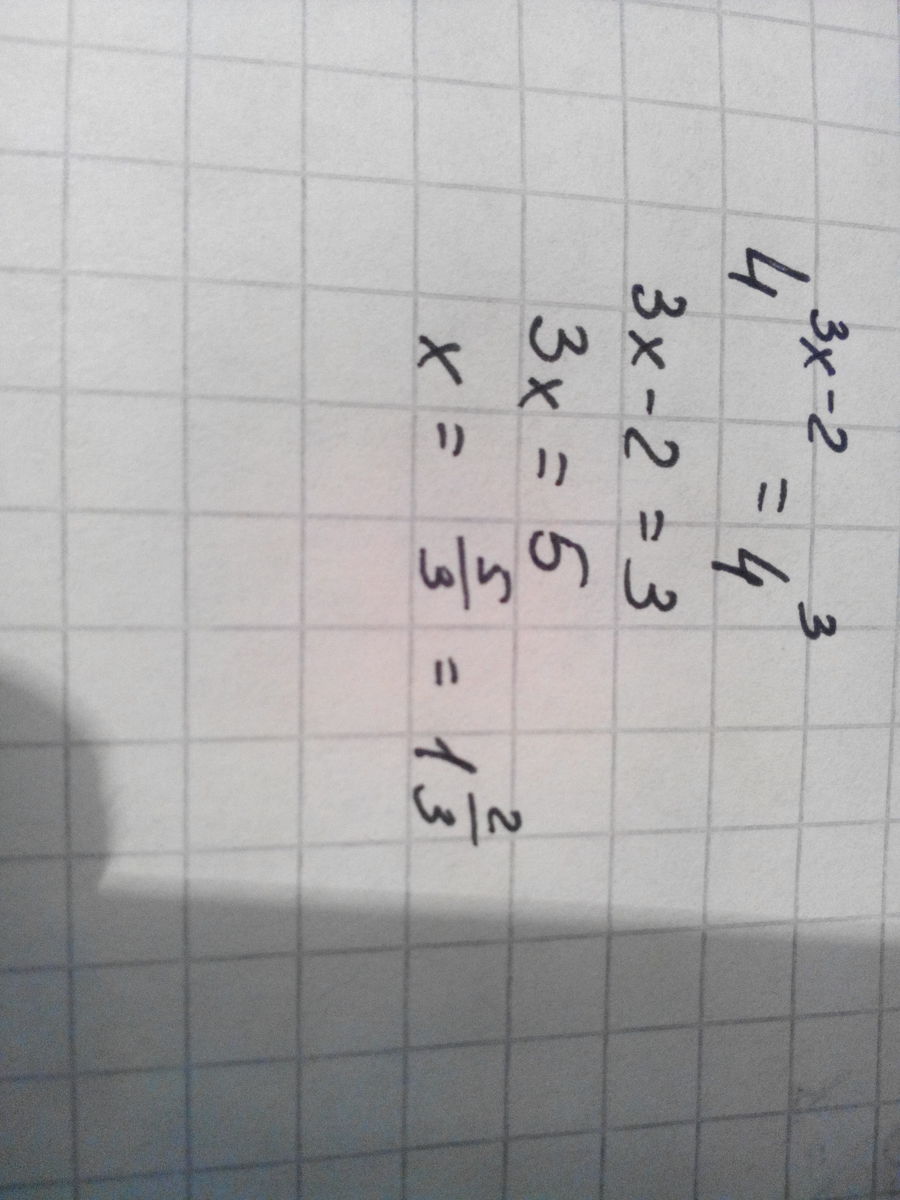 4^{3x-2} = 4^3
3x-2 = 3
3x = 5
x = 5/3 = 1 2/3